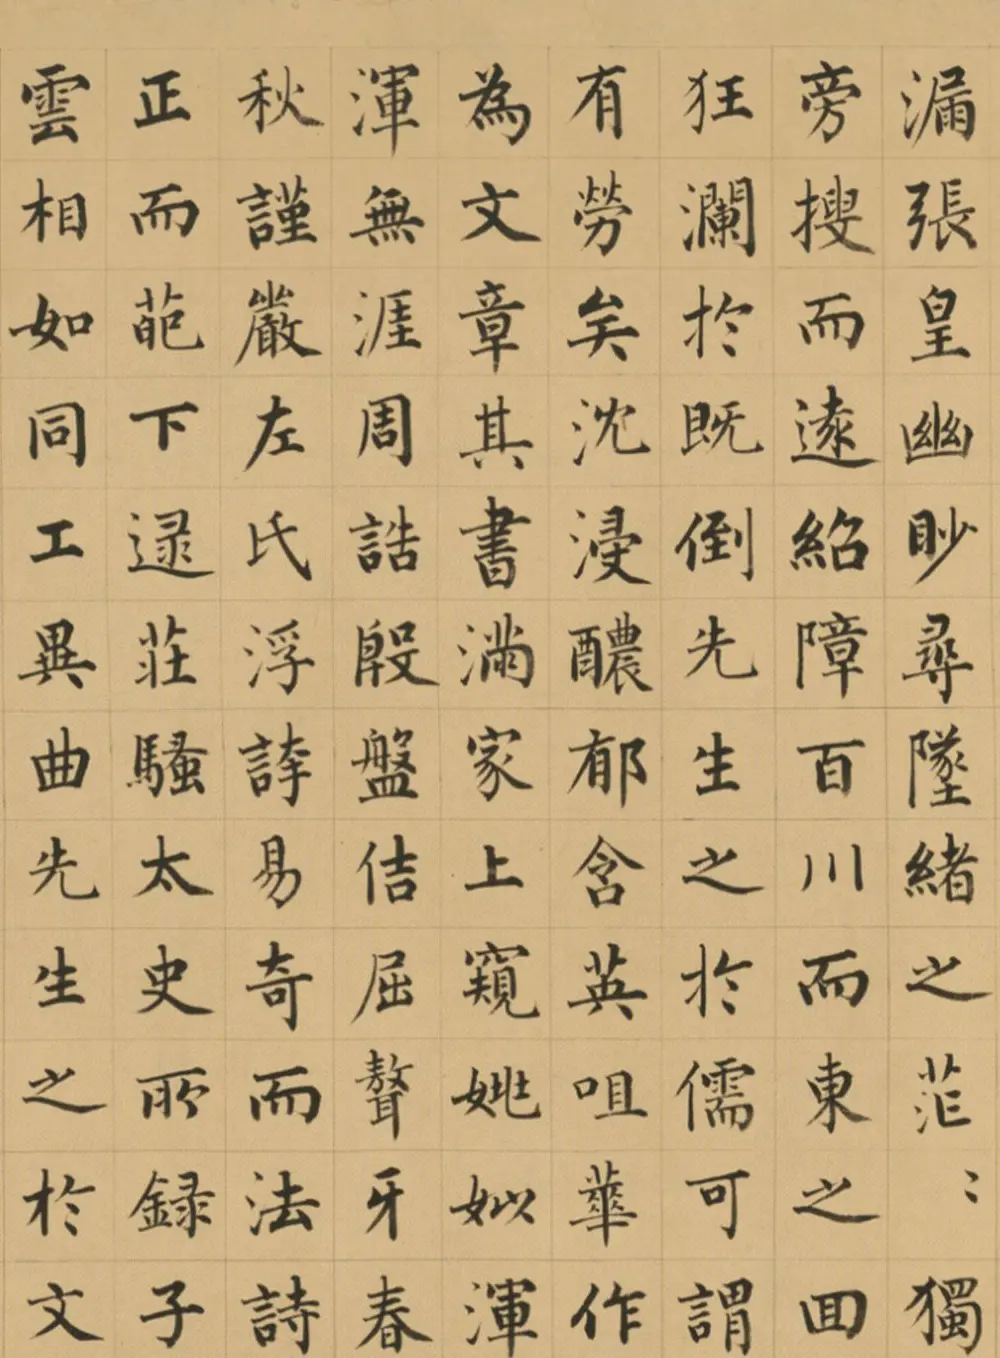 漏張皇幽眇尋墜緒之茫〻獨
旁搜而遠紹障百川而東之回
狂瀾於既倒先生之於儒可謂
有勞矣沈浸醲郁含英咀華作
為文章其書滿家上窺姚姒渾
渾無涯周誥殷盤佶屈聱牙春
秋謹嚴左氏浮誇易奇而法詩
正而葩下逯莊騷太史所録子
雲相如同工異曲先生之於文